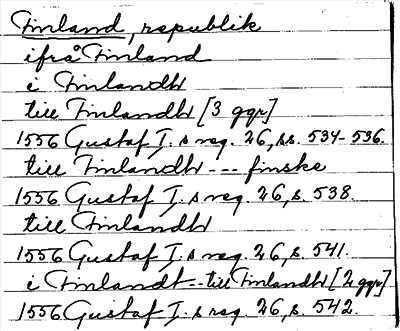 Finland, republik
ifrå Finland
i Finlandh
till Finlandh [3 ggr]
1556 Gustaf I:s reg. 26, ss. 534-536.
till Finlandh --- finske
1556 Gustaf I:s reg. 26, s. 538.
till Finlandh
1556 Gustaf I:s reg. 26, s. 541.
i Finlandt - till Finlandh [2 ggr]
1556 Gustaf I:s reg. 26, s. 542.